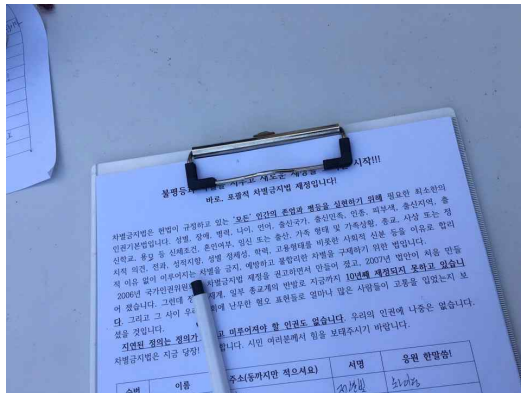 불평등의 새로운 시작!!!
바로, 포괄적 차별금지법 제정입니다!
차별금지법은 헌법이 규정하고 있는 '모든' 인간의 존엄과 평등을 실현하기 위해 필요한 최소한의
인권기본법입니다. 성별, 장애, 병력, 나이, 언어, 출신국가, 출신민족, 인종, 피부색, 출신지역, 출
신학교, 용모 등 신체조건, 혼인여부, 임신 또는 출산, 가족 형태 및 가족상황, 종교, 사상 또는 정
치적 의견, 전과, 성적지향, 성별 정체성, 학력, 고용형태를 비롯한 사회적 신분 등을 이유로 합리
적 이유 없이 이루어지는 차별을 금지, 예방하고 불합리한 차별을 구제하기 위한 법입니다.
2006년 국가인권위원회 차별금지법 제정을 권고하면서 만들어 졌고, 2007년 법안이 처음 만들
어 졌습니다. 그런데 재계, 일부 종교계의 반발로 지금까지 10년째 제정되지 못하고 있습니
다. 그리고 그 사이 우리 회에 난무한 혐오 표현들로 얼마나 많은 사람들이 고통을 입었는지 보
셨을 것입니다.
지연된 정의는 정의가 고 미루어져야 할 인권도 없습니다. 우리의 인권에 나중은 없습니다.
차별금지법은 지금 당장! 합니다. 시민 여러분께서 힘을 보태주시기 바랍니다.
순번 이름 주소(동까지만 적으셔요) 서명 응원 한말씀!